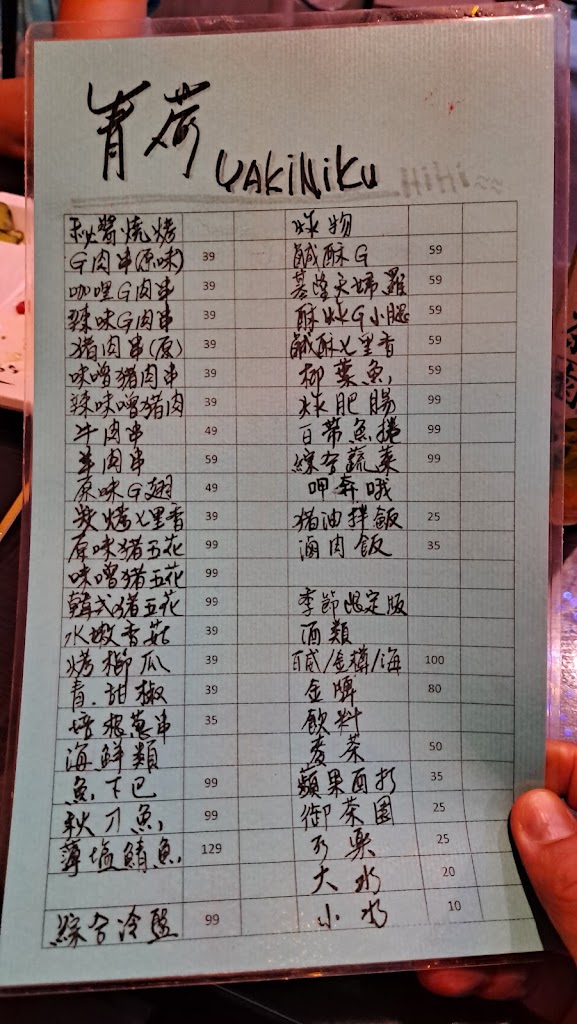 青荷
YAKiNiKU HiHi
秋醬燒烤
G肉串(原味) 39
咖哩G肉串 39
辣味G肉串 39
豬肉串(原) 39
味噌豬肉串 39
辣味噌豬肉 39
牛肉串 49
羊肉串 59
原味G翅 49
炭烤七里香 39
原味豬五花 99
味噌豬五花 99
韓式豬五花 99
水嫩香菇 39
烤櫛瓜 39
青.甜椒 39
培根蔥串 35
海鮮類
魚下巴 99
秋刀魚 99
薄塩鯖魚 129
綜合冷盤 99
炸物
鹹酥G 59
基隆天婦羅 59
酥炸G小腿 59
鹹酥七里香 59
柳葉魚 59
炸肥腸 99
百帶魚捲 99
綜合蔬菜 99
呷奔哦
豬油拌飯 25
滷肉飯 35
季節限定版
酒類
百威/金樽/海 100
金牌 80
飲料
麥茶 50
蘋果西打 35
御茶園 25
可樂 25
大水 20
小水 10